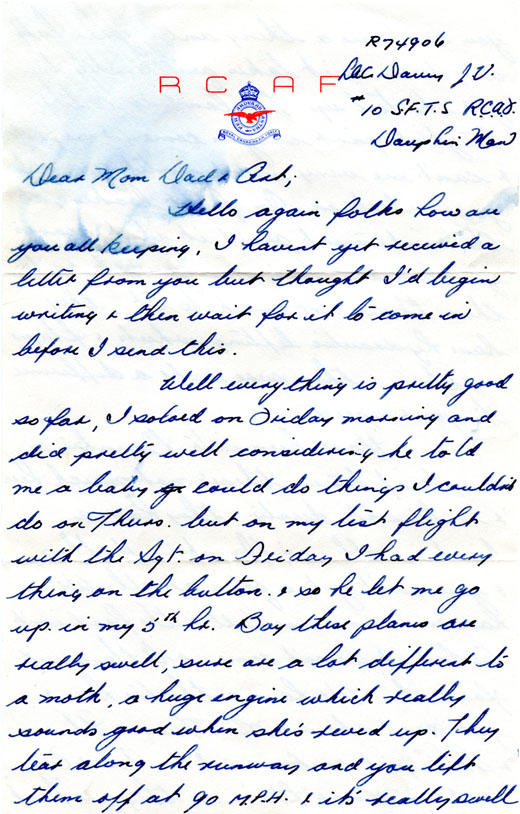 R74906
RCAF
LAC Davey J V.
#10 S.F.T.S R.C.A.F.
Dauphin Man
Dear Mom Dad & Art;
Hello again folks how are
you all keeping, I havent yet received a
letter from you but thought I'd begin
writing & then wait for it to come in
before I send this.
Well everything is pretty good
so far, I soloed on Friday morning and
did pretty well considering he told
me a baby could do things I couldn't
do on Thurs. but on my test flight
with the Sgt. on Friday I had every
thing on the button. & so he let me go
up. in my 5th hr. Boy these planes are
really swell, sure are a lot different to
a moth, a huge engine which really
sounds good when she's reved up. They
tear along the runway and you lift
them off at 90 M.P.H. & it's really swell